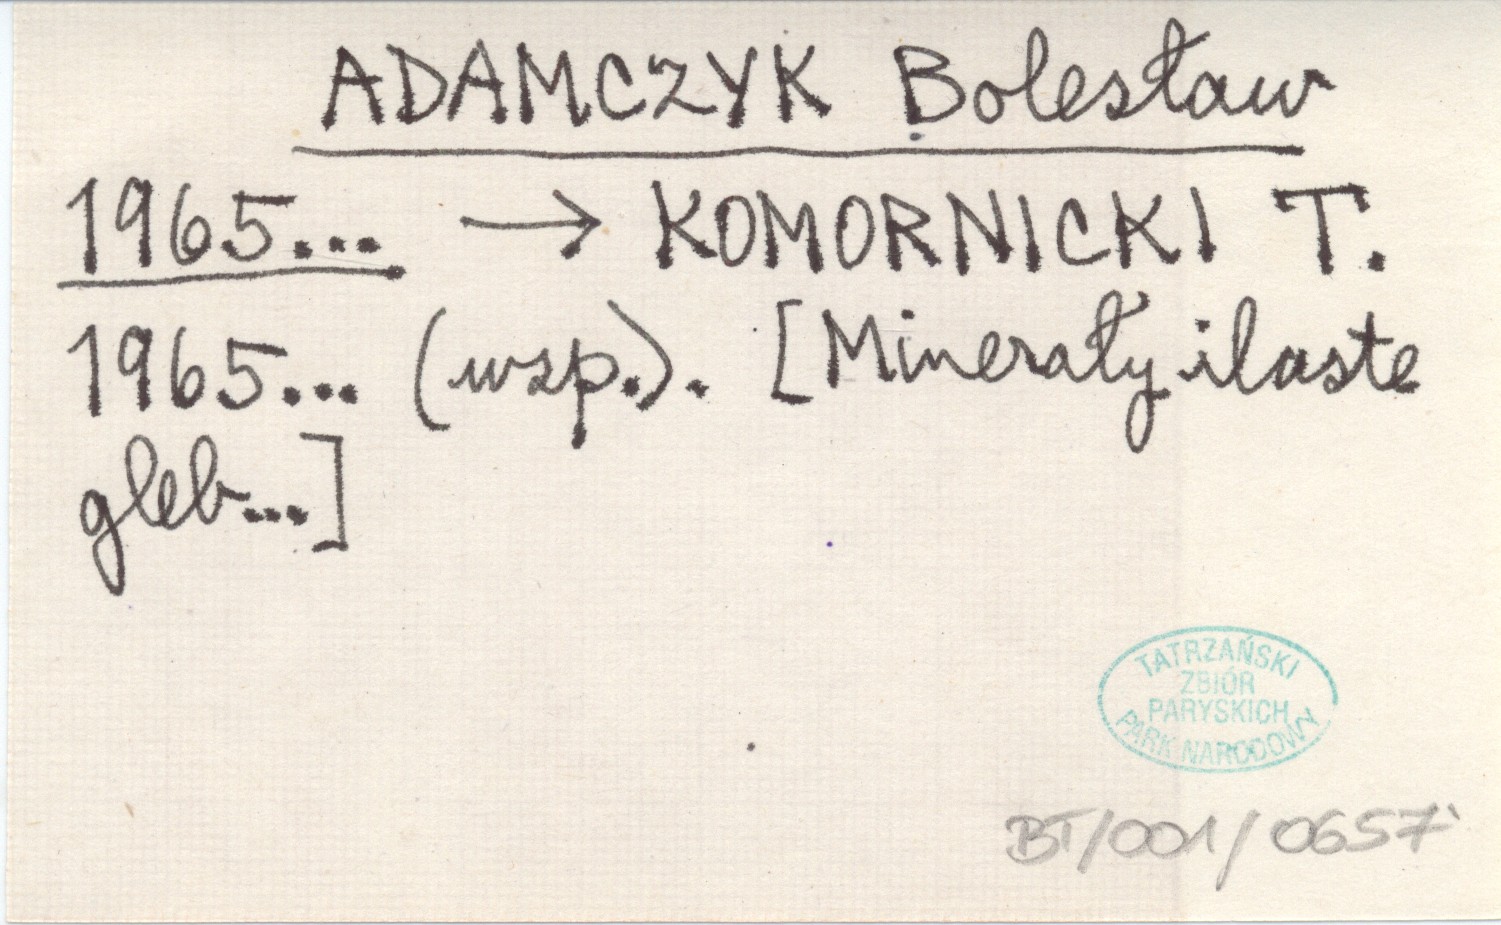 ADAMCZYK Bolesław
1965... → KOMORNICKI T.
1965... (wsp.). [Minerały ilaste
gleb...]
TATRZAŃSKI
ZBIÓR
PARYSKICH
PARK NARODOWY
BT/001/0657